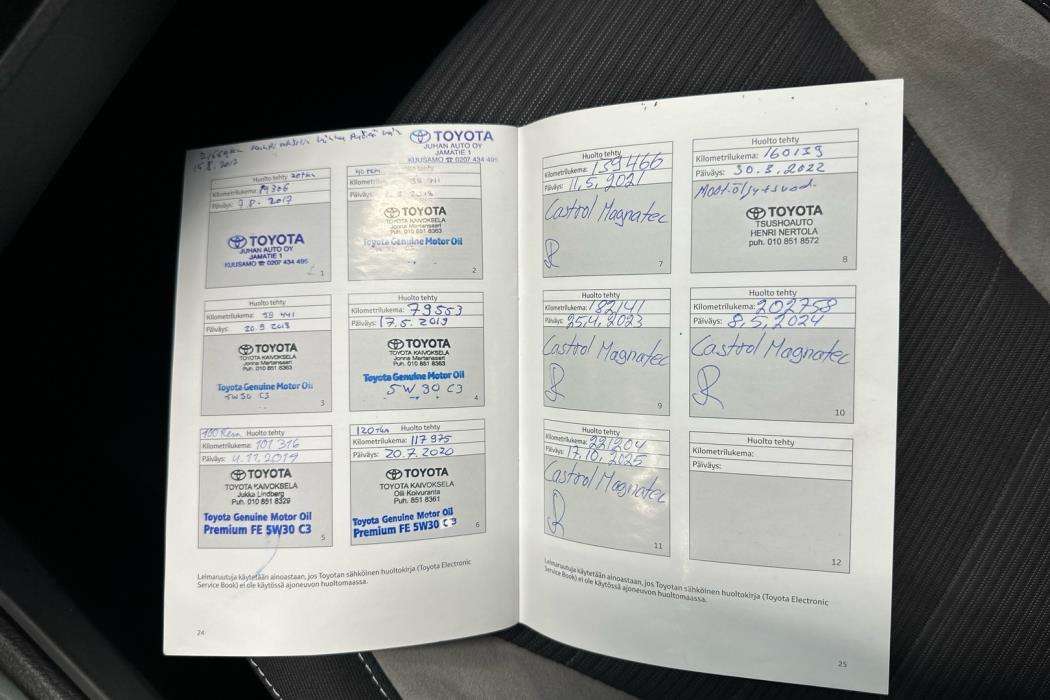 15.8.2017
TOYOTA
JUHAN AUTO OY
JAMATIE 1
KUUSAMO ☎ 0207 434 495
Huolto tehty 20tkm
Kilometrilukema: 19306
Päiväys: 7.8.2017
TOYOTA
JUHAN AUTO OY
JAMATIE 1
KUUSAMO ☎ 0207 434 495
1
40 tkm Huolto tehty
Kilometrilukema:
Päiväys:
TOYOTA
TOYOTA KAIVOKSELA
Jonna Martensson
Puh. 010 851 8363
Toyota Genuine Motor Oil
2
Huolto tehty
Kilometrilukema: 59 441
Päiväys: 20.9 2018
TOYOTA
TOYOTA KAIVOKSELA
Jonna Martensson
Puh. 010 851 8363
Toyota Genuine Motor Oil
5W30 C3
3
Huolto tehty
Kilometrilukema: 79553
Päiväys: 17.5.2019
TOYOTA
TOYOTA KAIVOKSELA
Jonna Martensson
Puh. 010 851 8363
Toyota Genuine Motor Oil
5W 30 C3
4
100 tkm Huolto tehty
Kilometrilukema: 101 316
Päiväys: 4.11.2019
TOYOTA
TOYOTA KAIVOKSELA
Jukka Lindberg
Puh. 010 851 8329
Toyota Genuine Motor Oil
Premium FE 5W30 C3
5
120tkm Huolto tehty
Kilometrilukema: 117 975
Päiväys: 20.7.2020
TOYOTA
TOYOTA KAIVOKSELA
Olli Koivuranta
Puh. 010 851 8361
Toyota Genuine Motor Oil
Premium FE 5W30 C3
6
Leimaruutuja käytetään ainoastaan, jos Toyotan sähköinen huoltokirja (Toyota Electronic
Service Book) ei ole käytössä ajoneuvon huoltomaassa.
24
Huolto tehty
Kilometrilukema: 139466
Päiväys: 11.5.2021
Castrol Magnatec
7
Huolto tehty
Kilometrilukema: 160139
Päiväys: 30.3.2022
TOYOTA
TSUSHOAUTO
HENRI NERTOLA
puh. 010 851 8572
8
Huolto tehty
Kilometrilukema: 182141
Päiväys: 25.4.2023
Castrol Magnatec
9
Huolto tehty
Kilometrilukema: 202758
Päiväys: 8.5.2024
Castrol Magnatec
10
Huolto tehty
Kilometrilukema: 221204
Päiväys: 17.10.2025
Castrol Magnatec
11
Huolto tehty
Kilometrilukema:
Päiväys:
12
Leimaruutuja käytetään ainoastaan, jos Toyotan sähköinen huoltokirja (Toyota Electronic
Service Book) ei ole käytössä ajoneuvon huoltomaassa.
25